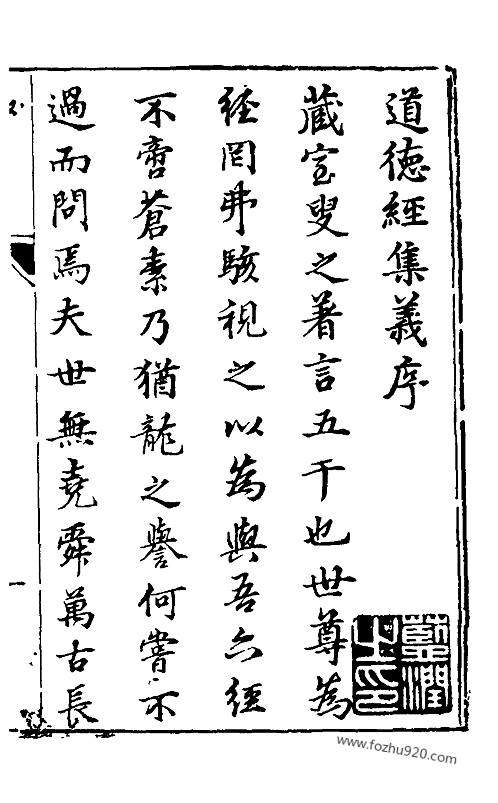 道德經集義序
藏室叟之著言五千也世尊為
經罔弗駭視之以為與吾六經
不啻蒼素乃猶龍之譽何嘗不
過而問焉夫世無堯舜萬古長
一
www.fozhu920.com